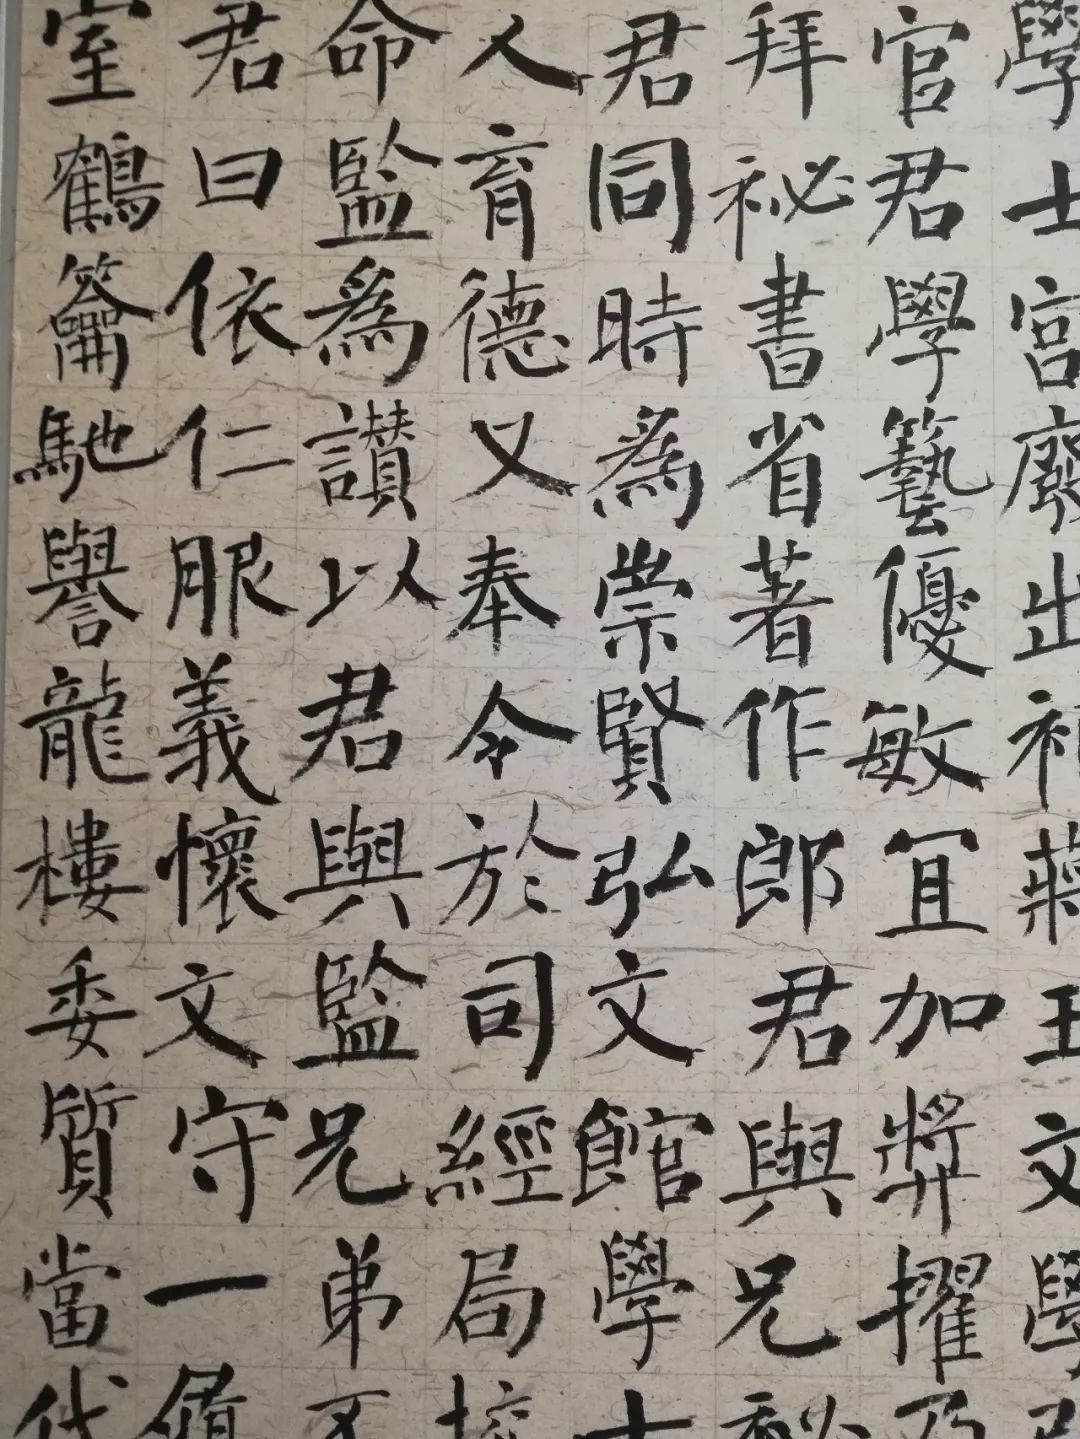 學士宮廢出補蔣王文學
官君學藝優敏宜加奬擢乃
拜祕書省著作郎君與兄秘
君同時爲崇賢弘文館學士
人育德又奉令於司經局校
命監爲讃以君與監兄弟不
君曰依仁服義懷文守一履
室鶴籥馳譽龍樓委質當代